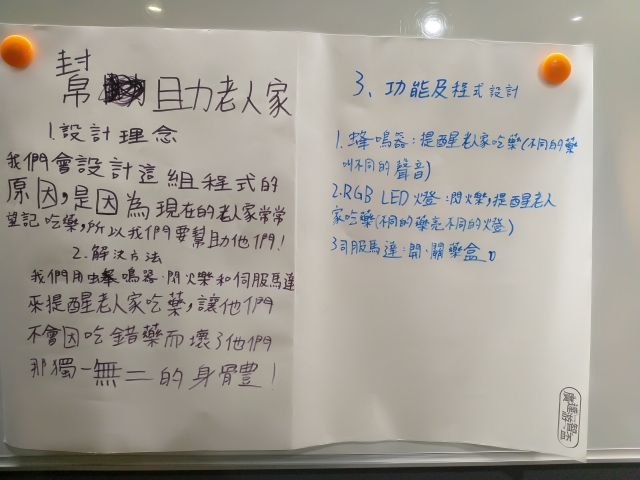 幫助老人家
1.設計理念
我們會設計這組程式的
原因,是因為現在的老人家常常
望記吃藥,所以我們要幫助他們!
2.解決方法
我們用蜂鳴器、閃火樂和伺服馬達
來提醒老人家吃藥,讓他們
不會因吃錯藥而壞了他們
那獨一無二的身體豊!
3、功能及程式設計
1.蜂鳴器:提醒老人家吃藥(不同的藥
叫不同的聲音)
2.RGB LED燈:閃爍,提醒老人
家吃藥(不同的藥亮不同的燈)
3伺服馬達:開、關藥盒。